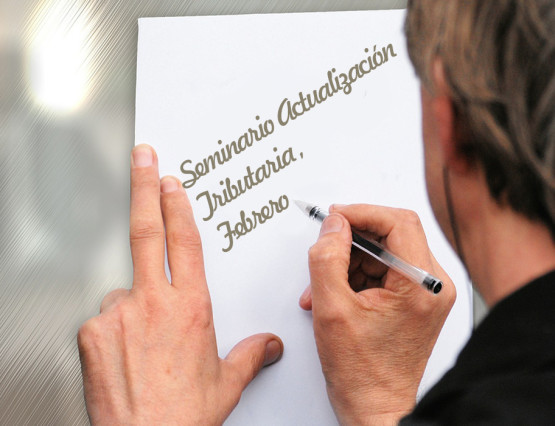 Seminario Actualización
Tributaria,
Febrero